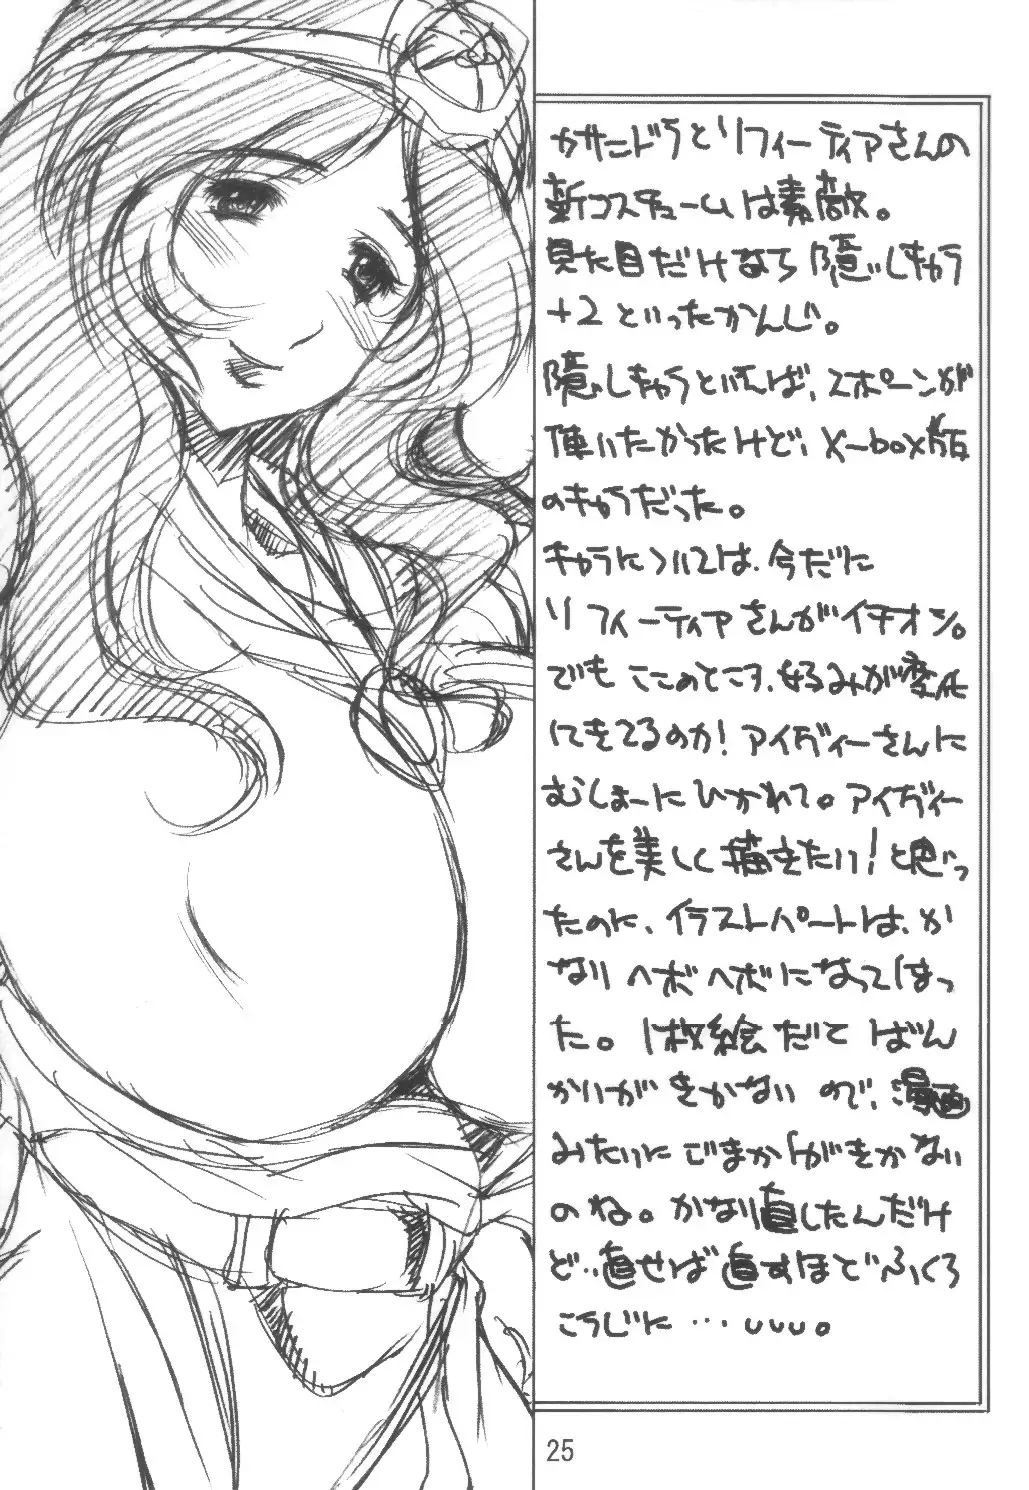 カサンドラとソフィーティアさんの
新コスチュームは素敵。
見た目だけなら隠しキャラ
+2といったかんじ。
隠しキャラといえば、スポーンが
使いたかったけど、X-box版
のキャラだった。
キャラにソルは、今だに
ソフィーティアさんがイチオシ。
でもここのところ、好みが変化
してきてるのか!アイヴィーさんに
むしょーにひかれて。アイヴィー
さんを美しく描きたい!と思っ
たのに、イラストパートは、か
なりヘボヘボになってしまっ
た。1枚絵だと ばん
かいがきかないので、漫画
みたいにごまかしがきかない
のね。かなり直したんだけ
ど‥直せば直すほどふくろ
こうじに…uuu。
25